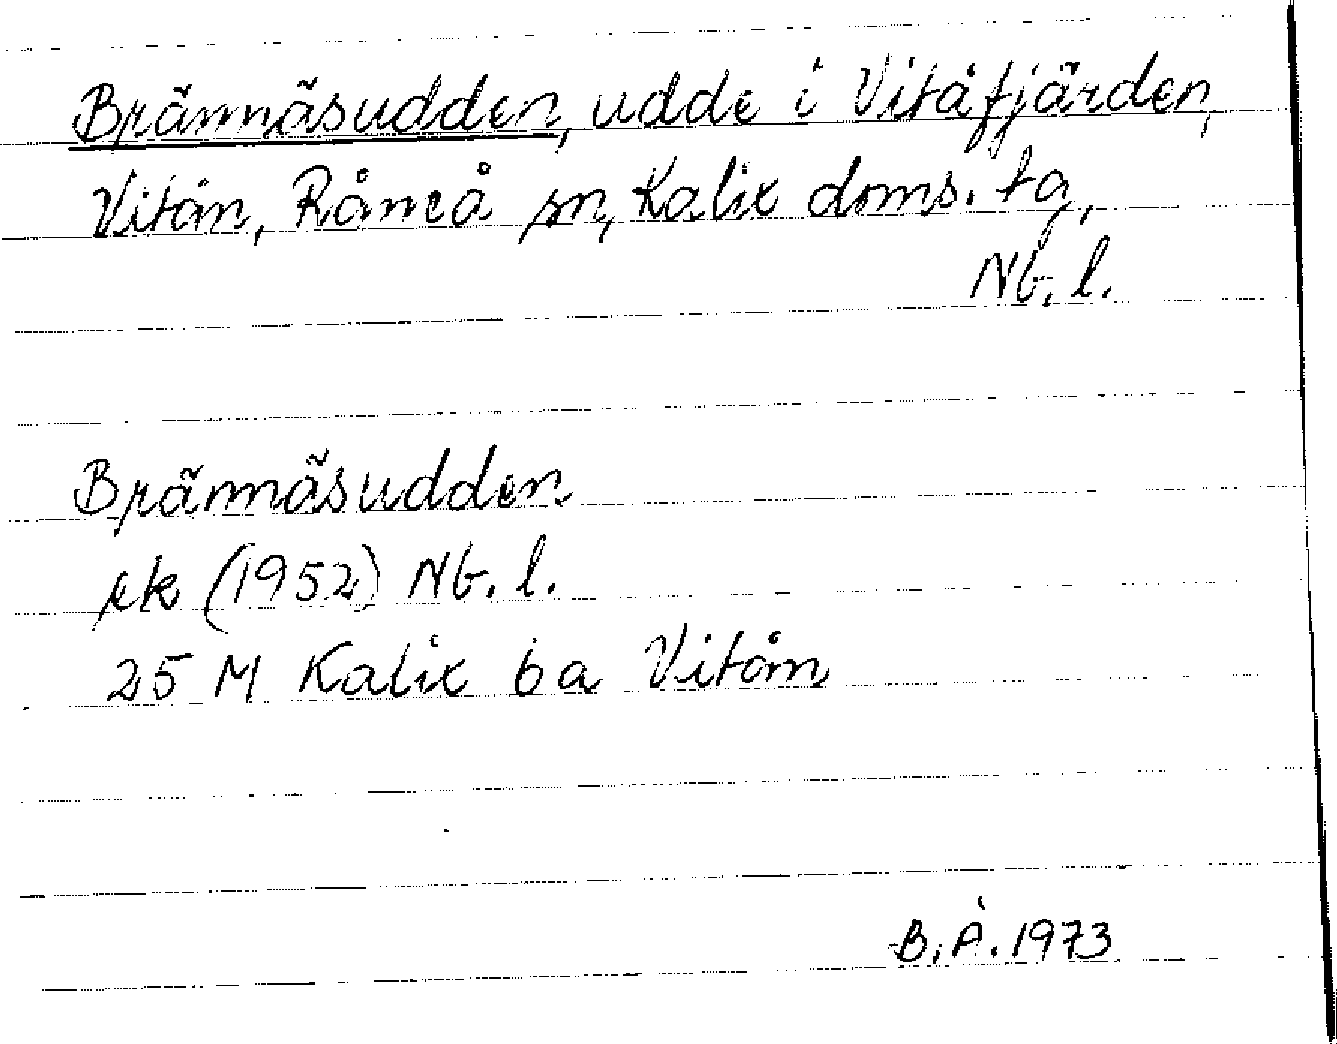 Brännäsudden, udde i Vitåfjärden,
Vitån, Råneå sn, Kalix doms. tg,
Nb. l.
Brännäsudden
ek (1952) Nb. l.
25 M Kalix 6a Vitån
B. Å. 1973